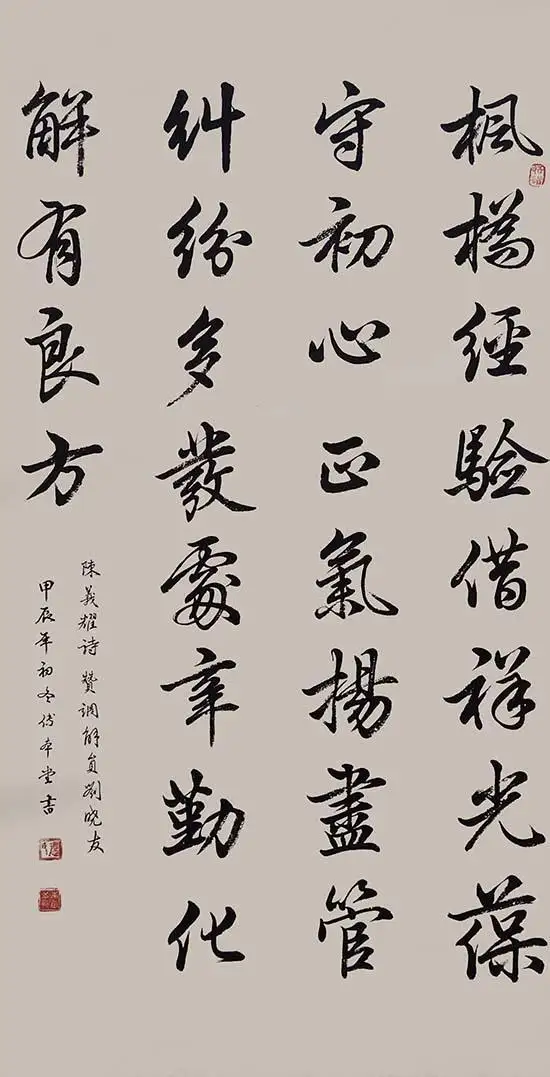 楓橋經驗借祥光葆
守初心正氣揚盡管
糾紛多發處辛勤化
解有良方
陳義耀詩 贊調解員劉曉友
甲辰年初冬傅本堂書